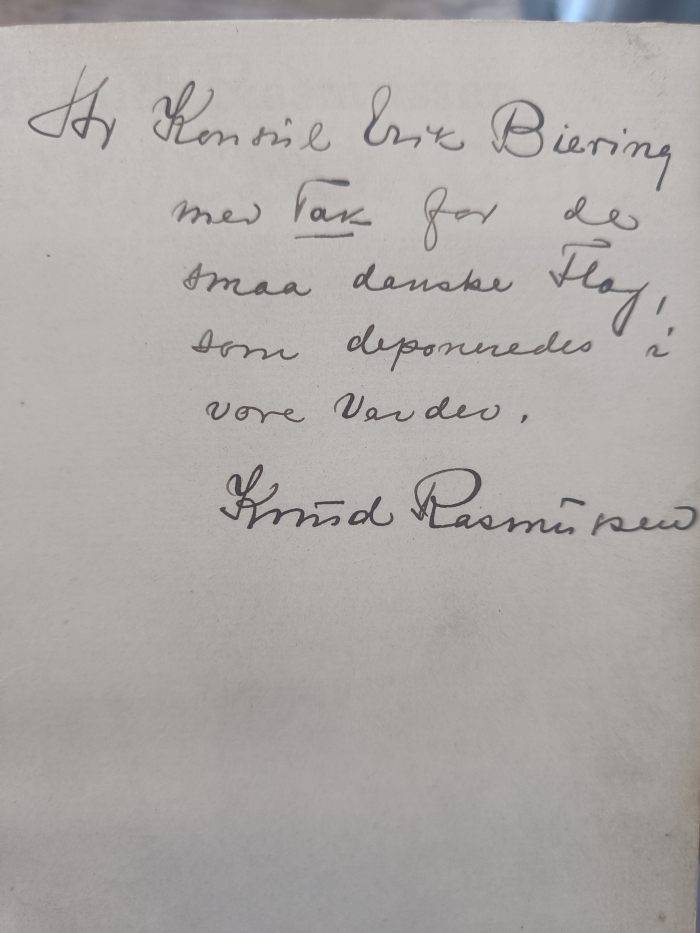 Hr Konsul Erik Biering
med Tak for de
smaa danske Flag,
som deponeredes i
vore Varder.
Knud Rasmussen